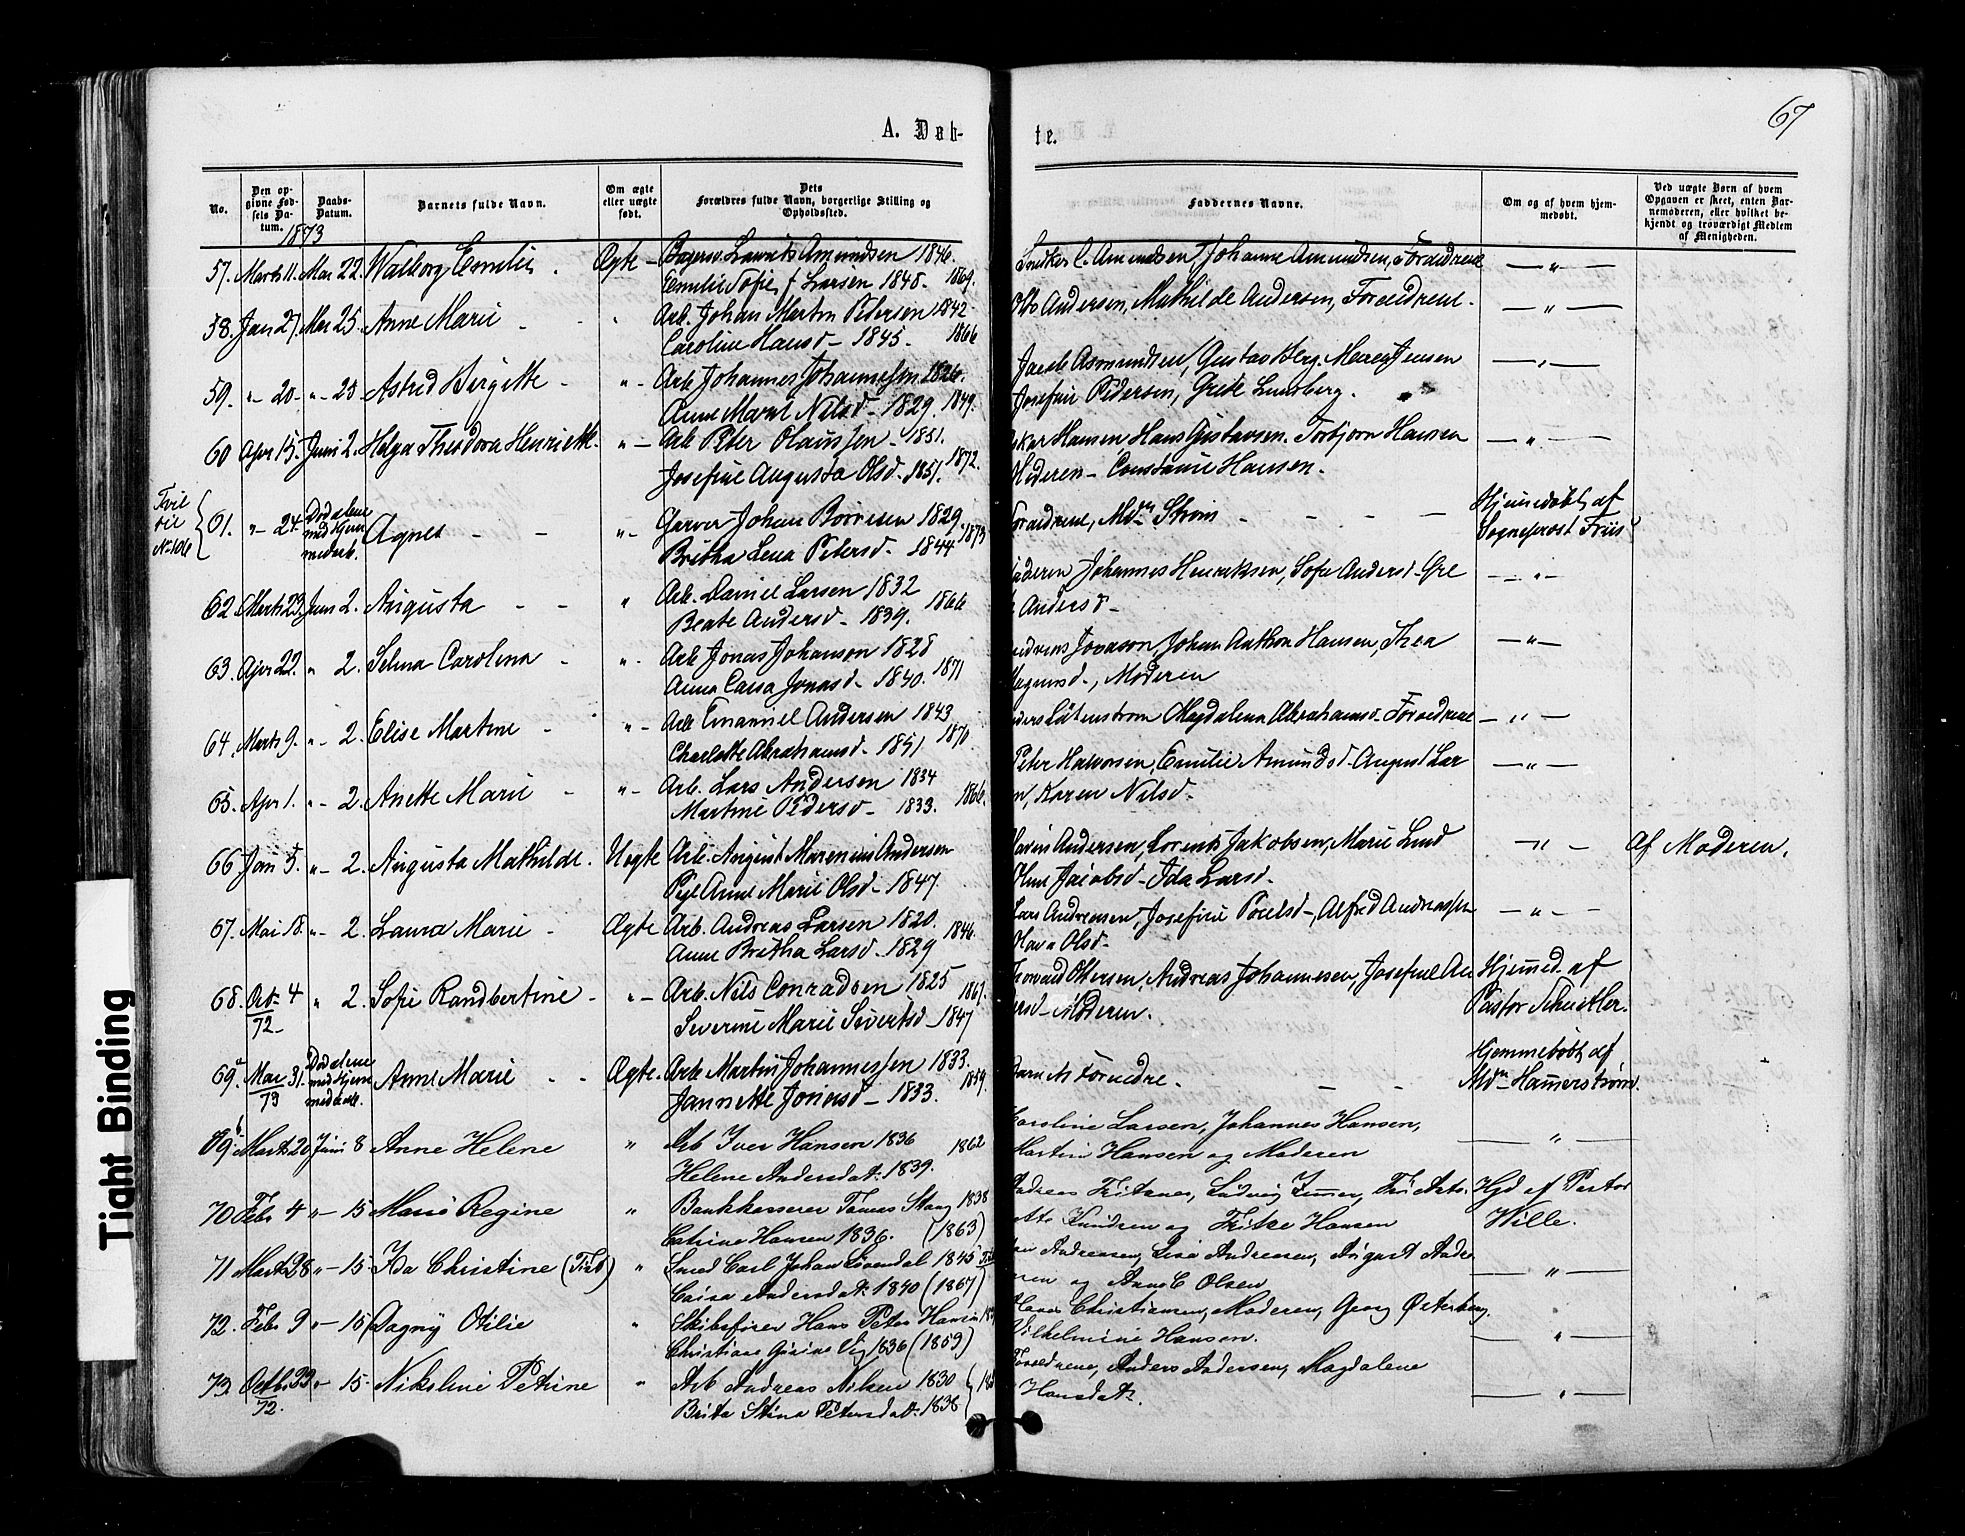 67
A. Døb-
te.
No.
Den op-
givne Fød-
sels Da-
tum.
Daabs-
Datum.
Barnets fulde Navn.
Om ægte
eller uægte
født.
Dets
Forældres fulde Navn, borgerlige Stilling og
Opholdssted.
Faddernes Navne.
Om og af hvem hjem-
medøbt.
Ved uægte Børn af hvem
Opgaven er skeet, enten Bar-
nemoderen, eller hvilket be-
kjendt og troværdigt Medlem
af Menigheden.
1873
57. Marts 11. Mai 22. Walborg Emilie. Ægte - Lauritz Amundsen 1846.
Emilie Sofie Larsen 1848. 1869.
Snedker C. Amundsen, Johanne Amundsen, Forældrene — „ —
58. Jan 27. Mai 25. Anne Marie „ Arb. Johan Martin Pedersen 1842
Caroline Hansd - 1845. 1866
Andersen, Mathilde Andersen, Forældrene. — „ —
59. „- 20. „- 25. Astrid Birgitte - „- Arb Johannes Johannesen 1826.
Anne Marie Nilsd - 1829. 1849.
Jacob Asmundsen, Gustav Berg, Jensen — „ —
Josefine Pedersen, Grete Lundberg.
60 Apr 15. Juni 2. Helga Theodora Henriette. „- Arb Peter Olaussen - 1851.
Josefine Augusta Olsd - 1851. 1872.
Hansen, Hans Gustavsen, Torbjørn Hansen — „ —
Moderen - Constance Hansen.
Tvil
No 106
61. „- 24. Agnes - - „- Garver Johan Børresen 1829
Britha Lena Petersd - 1844 1873
Forældrene, Mdm Strøm - - - - Hjemmedøbt af
Sogneprest Friis
62 Marts 23. Juni 2. Augusta - - „ Arb. Daniel Larsen 1832
Beate Andersd - 1839. 1866
Johannes Henriksen, Sofie Andersd - — „ —
Andersd -
63. Apr 22. „ 2. Selma Carolina - „- Arb Jonas Johanson 1828
Anna Caisa Jonasd - 1840. 1871
Jonason, Johan Anthon Hansen, Thea — „ —
Moderen
64. Marts 9. „- 2. Elise Martine - „- Arb Emanuel Andersen 1843
Charlotte Abrahamsd - 1851 1870
Magdalena Abrahamsd - Forældrene — „ —
65. Apr 1. „- 2. Anette Marie - „- Arb. Lars Andersen 1834
Martine Pedersd - 1833. 1866.
Peter Halvorsen, Emilie Amundsd - August Lar — „ —
n, Karen Nilsd -
66 Jan 5. „- 2. Augusta Mathilde. Uægte Arb. August Marenius Andersen
Pige Anne Marie Olsd - 1847.
Andersen, Lorents Jakobsen, Marie Lund — „ — Af Moderen.
Jacobsd - Ida Larsd -
67. Mai 18. „- 2. Laura Marie - Ægte Arb. Andreas Larsen 1820.
Anne Britha Larsd - 1829 1846.
Lars Andreasen, Josefine Poulsd -, Alfred Andreassen — „ —
Olsd -
68. Oct - 4 „ 2. Sofie Randbertine - „- Arb. Nils Conradsen 1825
72 - Severine Marie Sivertsd - 1847 1867.
Ottersen, Andreas Johannesen, Josefine An Hjemmed. af
ersd - Moderen. Pastor
69 a Mai 31. Anne Marie - - Ægte. Arb Martin Johannessen 1833.
73 Jannette Jonasd - 1833. 1859.
Barnets Forældre. - - Hjemmedøbt af
Mdm Hammerstrøm.
69 b Marts 20 Juni 8 Anne Helene „ Arb Iver Hansen 1836
Helene Andersdat. 1839. 1862
Caroline Larsen, Johannes Hansen, — „ —
Martin Hansen og Moderen
70 Febr 4 „- 15 Marie Regine „ Bankkasserer Tomas Stang 1838
Catrine Hansen 1836. (1863)
Andreas Ludvig Hjd af Pastor
Knudsen og Hansen Wille.
71 Marts 28 „- 15. Ida Christine „ Smed Carl Johan 1845
Caisa Andersdat. 1840 (1867)
Andreasen, Lise Andreasen, August Andre — „ —
sen og Anne C Olsen
72. Febr 9 „- 15 Dagny Otilie „ Skibsfører Hans Peter Hansen
Christiane 1836 (1859)
Christiansen, Moderen, Georg Østerberg. — „ —
Vilhelmine Hansen.
73 Octb 23 „- 15. Nikoline Petrine „ Arb Andreas Nilsen 1830
72. Brita Stina Petersdat. 1838
Forældrene, Anders Andersen, Magdalene — „ —
Hansdat.
Tight Binding